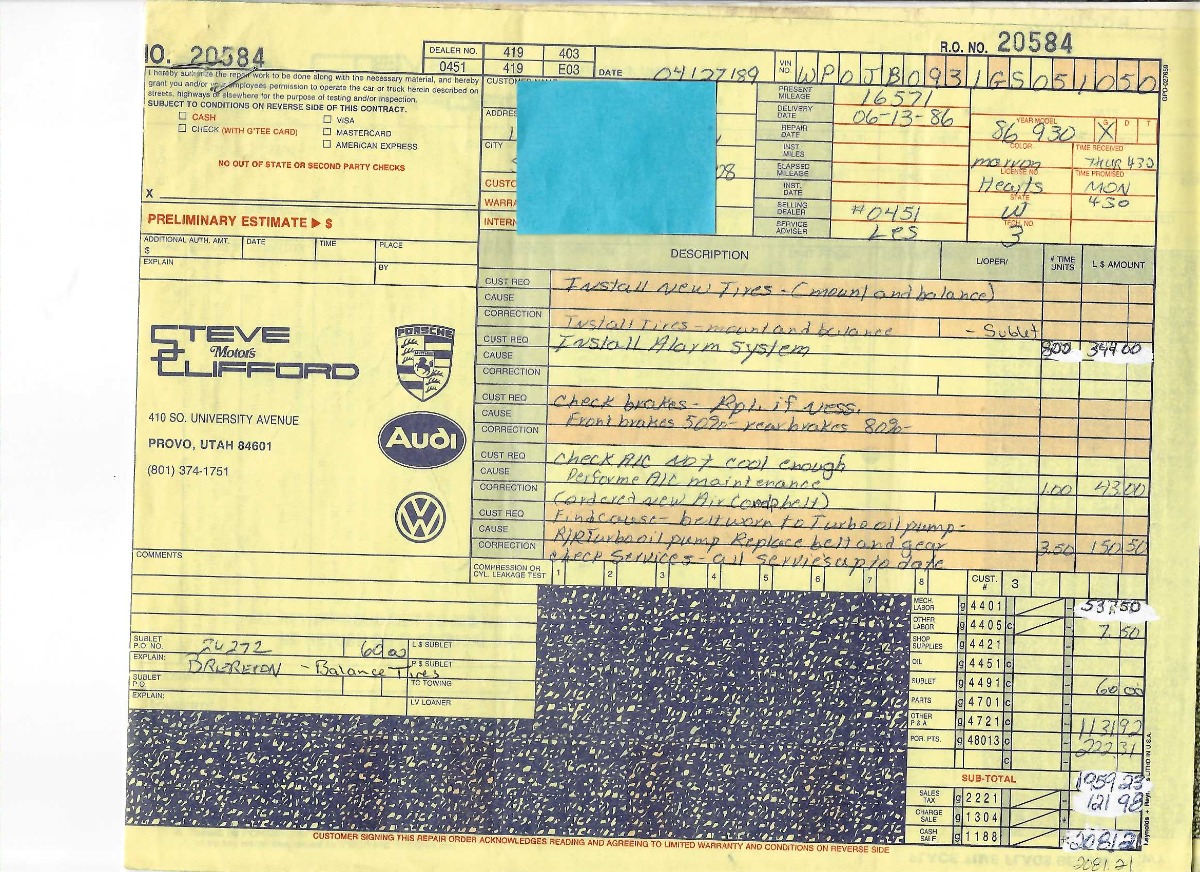 NO. 20584
R.O. NO. 20584
DEALER NO. 419 403
0451 419 E03
DATE 04/27/89
VIN NO. WP0JB0931GS051050
I hereby authorize the repair work to be done along with the necessary material, and hereby
grant you and/or your employees permission to operate the car or truck herein described on
streets, highways or elsewhere for the purpose of testing and/or inspection.
SUBJECT TO CONDITIONS ON REVERSE SIDE OF THIS CONTRACT.
CASH VISA
CHECK (WITH G'TEE CARD) MASTERCARD
AMERICAN EXPRESS
NO OUT OF STATE OR SECOND PARTY CHECKS
X
PRELIMINARY ESTIMATE ▶ $
ADDITIONAL AUTH. AMT. DATE TIME PLACE
$
EXPLAIN BY
CITY
08
PRESENT MILEAGE 16571
DELIVERY DATE 06-13-86
REPAIR DATE
INST. MILES
ELAPSED MILEAGE
INST. DATE
SELLING DEALER #0451
SERVICE ADVISER Les
YEAR MODEL 86 930 X D T
COLOR maroon
TIME RECEIVED THUR 430
LICENSE NO. Hearts
TIME PROMISED MON 430
STATE
TECH. NO. 3
DESCRIPTION L/OPER/ # TIME UNITS L $ AMOUNT
CUST REQ Install New Tires - (mount and balance)
CAUSE
CORRECTION Install Tires - mount and balance - Sublet
CUST REQ Install Alarm System 800 344 00
CAUSE
CORRECTION
CUST REQ Check brakes - Rpl. if ness.
CAUSE Front brakes 50% - rear brakes 80% -
CORRECTION
CUST REQ check A/C Not cool enough
CAUSE Performe A/C maintenance
CORRECTION (ordered new Air Cond belt) 1.00 43.00
CUST REQ Find cause - belt worn to Turbo oil pump -
CAUSE R/R Turbo oil pump Replace belt and gear
CORRECTION 3.50 150 50
check services - all servies up to date
COMPRESSION OR CYL. LEAKAGE TEST 1 2 3 4 5 6 7 8
STEVE
Motors
CLIFFORD
PORSCHE
410 SO. UNIVERSITY AVENUE
PROVO, UTAH 84601
(801) 374-1751
Audi
VW
COMMENTS
SUBLET P.O. NO. 24272 60 00 L $ SUBLET
EXPLAIN: BRERETON - Balance Tires P $ SUBLET
SUBLET P.O. TC TOWING
EXPLAIN: LV LOANER
CUST. # 3
MECH. LABOR g 4401 537 50
OTHER LABOR g 4405 c 7 50
SHOP SUPPLIES g 4421
OIL g 4451 c
SUBLET g 4491 c 60 00
PARTS g 4701 c
OTHER P & A g 4721 c 1131 92
POR. PTS. g 48013 c 222 31
c
SUB-TOTAL 1959 23
SALES TAX g 2221 121 98
CHARGE SALE g 1304
CASH SALE g 1188 2081 21
2081.21
CUSTOMER SIGNING THIS REPAIR ORDER ACKNOWLEDGES READING AND AGREEING TO LIMITED WARRANTY AND CONDITIONS ON REVERSE SIDE